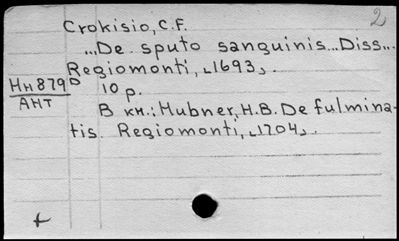 2
Crokisio, C.F.
...De sputo sanguinis...Diss...
Regiomonti, ⌞1693⌟.
Нн879D
АНТ
10 p.
В кн.: Hubner, H.B. De fulmina-
tis. Regiomonti, ⌞1704⌟.